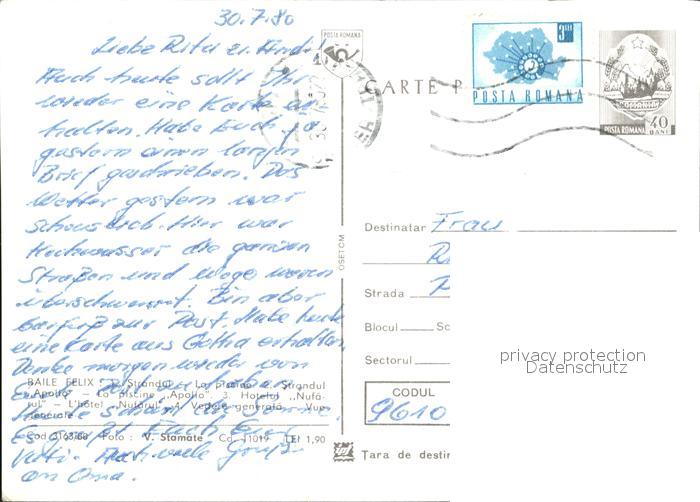 30.7.80
Liebe Rita u. Andi!
Auch heute sollt Ihr
wieder eine Karte er-
halten. Habe Euch ja
gestern einen langen
Brief geschrieben. Das
Wetter gestern war
scheuslich. Hier war
Hochwasser die ganzen
Straßen und Wege waren
überschwemmt. Bin aber
barfuß zur Post. Habe heute
eine Karte aus Gotha erhalten.
Denke morgen wieder von
Es grüßt Euch Euer
Vati. Auch viele Grüße
an Oma.
BAILE FELIX 1. Ştrandul
„Apollo" — La piscine „Apollo" 3. Hotelul „Nufă-
rul" — L'hôtel „Nufărul" 4. Vedere generală — Vue
generale
Cod 3163/80 Foto: V. Stamate Cd. 11019 LEI 1,90
OSETCM
POSTA ROMANA
CARTE P
3 LEI
POSTA ROMANA
POSTA ROMANA
40
BANI
Destinatar Frau
R
Strada P
Blocul Sc
Sectorul
CODUL
9610
Ţara de destin
privacy protection
Datenschutz